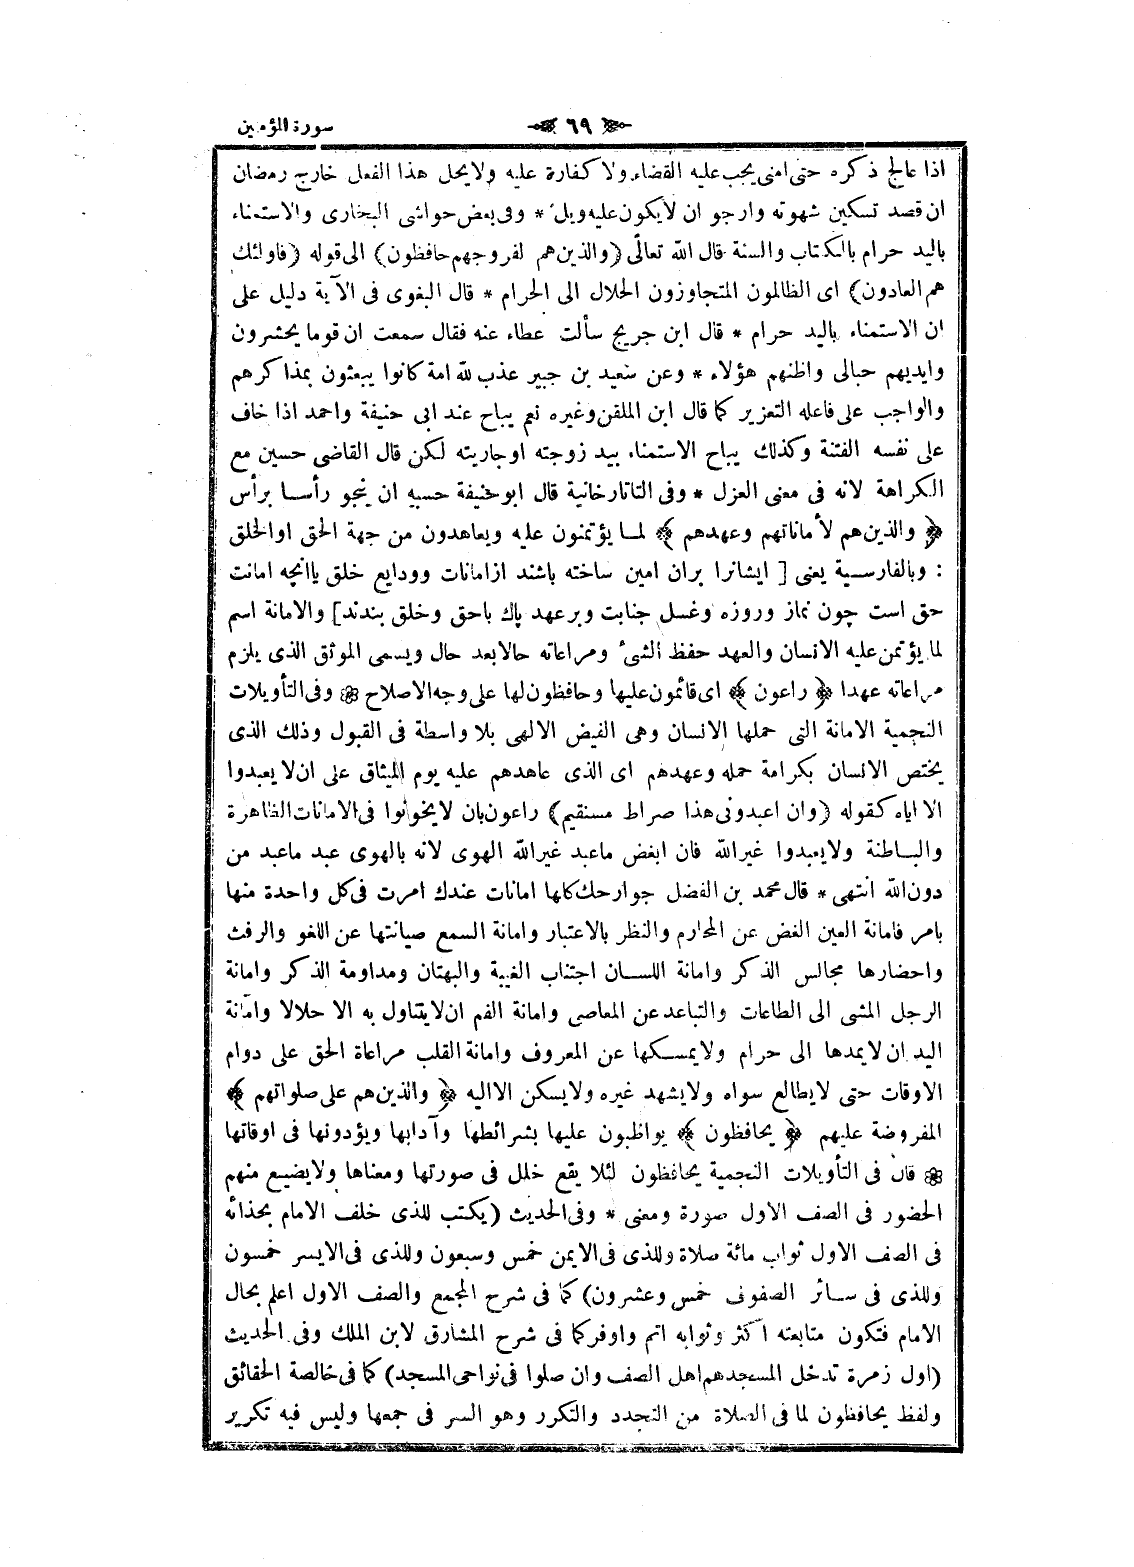 سورة المؤمنين
٦٩
اذا عالج ذكره حتى امنى يجب عليه القضاء ولا كفارة عليه ولا يحل هذا الفعل خارج رمضان
ان قصد تسكين شهوته وارجو ان لا يكون عليه وبل * وفى بعض حواشى البخارى والاستمناء
باليد حرام بالكتاب والسنة قال الله تعالى (والذين هم لفروجهم حافظون) الى قوله (فاولئك
هم العادون) اى الظالمون المتجاوزون الحلال الى الحرام * قال البغوى فى الآية دليل على
ان الاستمناء باليد حرام * قال ابن جريج سألت عطاء عنه فقال سمعت ان قوما يحشرون
وايديهم حبالى واظنهم هؤلاء * وعن سعيد بن جبير عذب لله امة كانوا يبعثون بمذاكرهم
والواجب على فاعله التعزير كما قال ابن الملقن وغيره نعم يباح عند ابى حنيفة واحمد اذا خاف
على نفسه الفتنة وكذلك يباح الاستمناء بيد زوجته او جاريته لكن قال القاضى حسين مع
الكراهة لانه فى معنى العزل * وفى التاتارخانية قال ابو حنيفة حسبه ان ينجو رأسا برأس
﴿ والذين هم لأماناتهم وعهدهم ﴾ لما يؤتمنون عليه ويعاهدون من جهة الحق او الخلق
: وبالفارسية يعنى [ ايشانرا بران امين ساخته باشند از امانات وودايع خلق ياآنچه امانت
حق است چون نماز وروزه وغسل جنابت وبرعهد پاك باحق وخلق بندند] والامانة اسم
لما يؤتمن عليه الانسان والعهد حفظ الشئ ومراعاته حالا بعد حال ويسمى الموثق الذى يلزم
مراعاته عهدا ﴿ راعون ﴾ اى قائمون عليها وحافظون لها على وجه الاصلاح ❀ وفى التأويلات
النجمية الامانة التى حملها الانسان وهى الفيض الالهى بلا واسطة فى القبول وذلك الذى
يختص الانسان بكرامة حمله وعهدهم اى الذى عاهدهم عليه يوم الميثاق على ان لا يعبدوا
الا اياه كقوله (وان اعبدونى هذا صراط مستقيم) راعون بان لا يخونوا فى الامانات الظاهرة
والباطنة ولا يعبدوا غير الله فان ابغض ما عبد غير الله الهوى لانه بالهوى عبد ما عبد من
دون الله انتهى * قال محمد بن الفضل جوارحك كلها امانات عندك امرت فى كل واحدة منها
بامر فامانة العين الغض عن المحارم والنظر بالاعتبار وامانة السمع صيانتها عن اللغو والرفث
واحضارها مجالس الذكر وامانة اللسان اجتناب الغيبة والبهتان ومداومة الذكر وامانة
الرجل المشى الى الطاعات والتباعد عن المعاصى وامانة الفم ان لا يتناول به الا حلالا وامانة
اليد ان لا يمدها الى حرام ولا يمسكها عن المعروف وامانة القلب مراعاة الحق على دوام
الاوقات حتى لا يطالع سواه ولا يشهد غيره ولا يسكن الا اليه ﴿ والذين هم على صلواتهم ﴾
المفروضة عليهم ﴿ يحافظون ﴾ يواظبون عليها بشرائطها وآدابها ويؤدونها فى اوقاتها
❀ قال فى التأويلات النجمية يحافظون لئلا يقع خلل فى صورتها ومعناها ولا يضيع منهم
الحضور فى الصف الاول صورة ومعنى * وفى الحديث (يكتب للذى خلف الامام بحذائه
فى الصف الاول ثواب مائة صلاة وللذى فى الايمن خمس وسبعون وللذى فى الايسر خمسون
وللذى فى سائر الصفوف خمس وعشرون) كما فى شرح المجمع والصف الاول اعلم بحال
الامام فتكون متابعته اكثر وثوابه اتم واوفر كما فى شرح المشارق لابن الملك وفى الحديث
(اول زمرة تدخل المسجد هم اهل الصف وان صلوا فى نواحى المسجد) كما فى خالصة الحقائق
ولفظ يحافظون لما فى الصلاة من التجدد والتكرر وهو السر فى جمعها وليس فيه تكرير